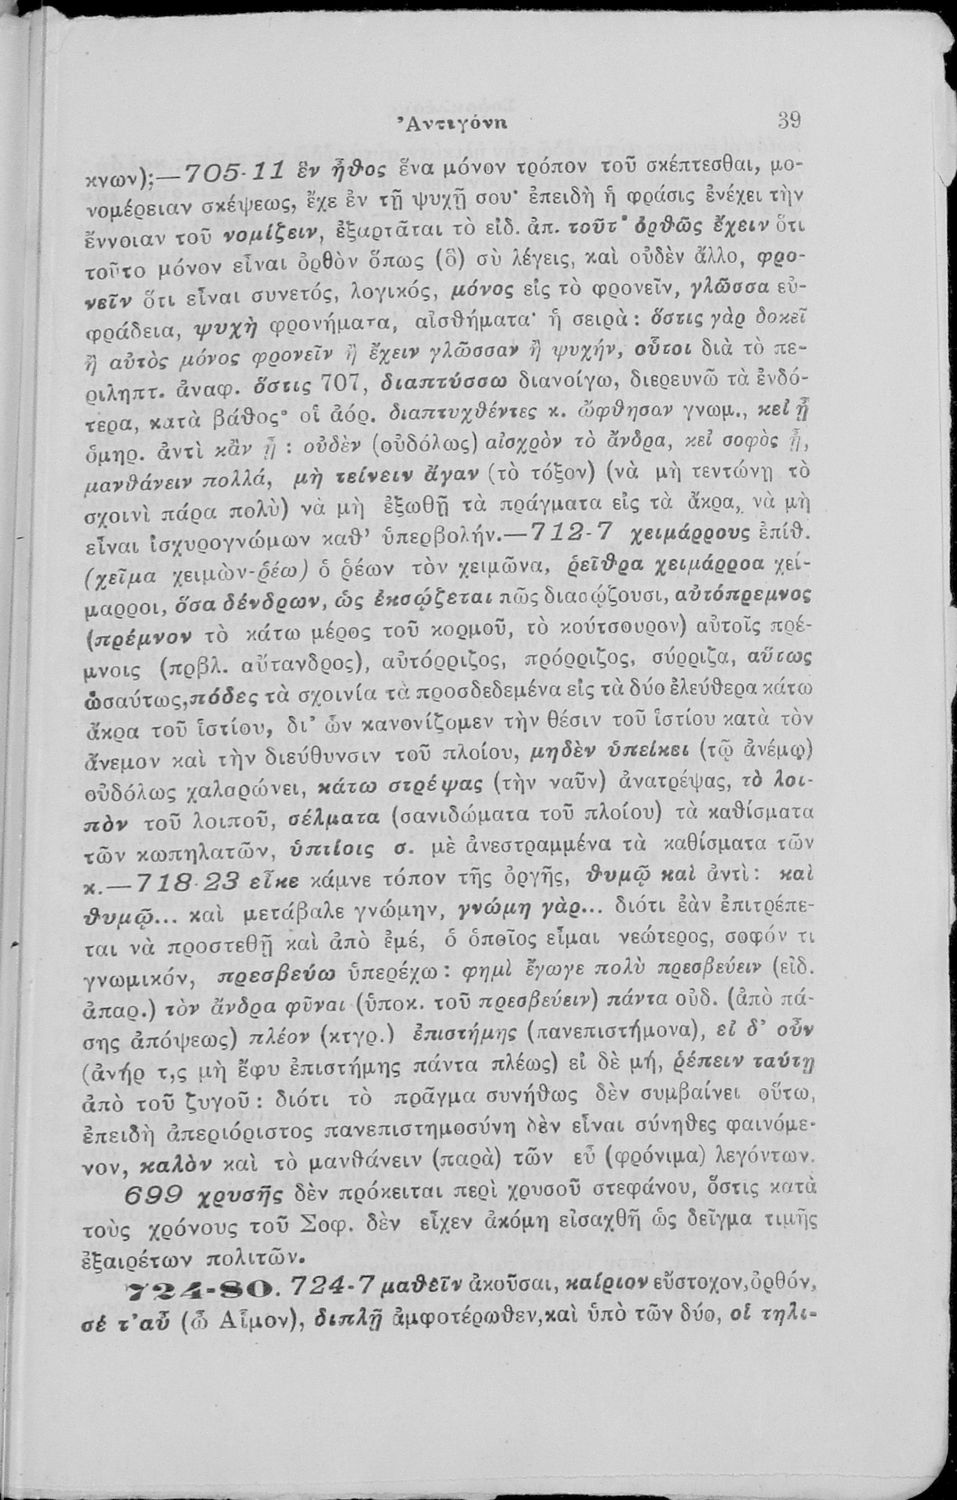 Ἀντιγόνη 39
κνων);—705-11 ἓν ἦθος ἕνα μόνον τρόπον τοῦ σκέπτεσθαι, μο-
νομέρειαν σκέψεως, ἔχε ἐν τῇ ψυχῇ σου· ἐπειδὴ ἡ φράσις ἐνέχει τὴν
ἔννοιαν τοῦ νομίζειν, ἐξαρτᾶται τὸ εἰδ. ἀπ. τοῦτ' ὀρθῶς ἔχειν ὅτι
τοῦτο μόνον εἶναι ὀρθὸν ὅπως (ὃ) σὺ λέγεις, καὶ οὐδὲν ἄλλο, φρο-
νεῖν ὅτι εἶναι συνετός, λογικός, μόνος εἰς τὸ φρονεῖν, γλῶσσα εὐ-
φράδεια, ψυχὴ φρονήματα, αἰσθήματα· ἡ σειρὰ: ὅστις γὰρ δοκεῖ
ἢ αὐτὸς μόνος φρονεῖν ἢ ἔχειν γλῶσσαν ἢ ψυχήν, οὗτοι διὰ τὸ πε-
ριληπτ. ἀναφ. ὅστις 707, διαπτύσσω διανοίγω, διερευνῶ τὰ ἐνδό-
τερα, κατὰ βάθος· οἱ ἀόρ. διαπτυχθέντες κ. ὤφθησαν γνωμ., κεἰ ᾖ
ὁμηρ. ἀντὶ κἂν ᾖ : οὐδὲν (οὐδόλως) αἰσχρὸν τὸ ἄνδρα, κεἰ σοφὸς ᾖ,
μανθάνειν πολλά, μὴ τείνειν ἄγαν (τὸ τόξον) (νὰ μὴ τεντώνῃ τὸ
σχοινὶ πάρα πολὺ) νὰ μὴ ἐξωθῇ τὰ πράγματα εἰς τὰ ἄκρα, νὰ μὴ
εἶναι ἰσχυρογνώμων καθ' ὑπερβολήν.—712-7 χειμάρρους ἐπίθ.
(χεῖμα χειμὼν-ῥέω) ὁ ῥέων τὸν χειμῶνα, ῥεῖθρα χειμάρροα χεί-
μαρροι, ὅσα δένδρων, ὡς ἐκσῴζεται πῶς διασῴζουσι, αὐτόπρεμνος
(πρέμνον τὸ κάτω μέρος τοῦ κορμοῦ, τὸ κούτσουρον) αὐτοῖς πρέ-
μνοις (πρβλ. αὔτανδρος), αὐτόρριζος, πρόρριζος, σύρριζα, αὕτως
ὡσαύτως,πόδες τὰ σχοινία τὰ προσδεδεμένα εἰς τὰ δύο ἐλεύθερα κάτω
ἄκρα τοῦ ἱστίου, δι' ὧν κανονίζομεν τὴν θέσιν τοῦ ἱστίου κατὰ τὸν
ἄνεμον καὶ τὴν διεύθυνσιν τοῦ πλοίου, μηδὲν ὑπείκει (τῷ ἀνέμῳ)
οὐδόλως χαλαρώνει, κάτω στρέψας (τὴν ναῦν) ἀνατρέψας, τὸ λοι-
πὸν τοῦ λοιποῦ, σέλματα (σανιδώματα τοῦ πλοίου) τὰ καθίσματα
τῶν κωπηλατῶν, ὑπτίοις σ. μὲ ἀνεστραμμένα τὰ καθίσματα τῶν
κ.—718-23 εἶκε κάμνε τόπον τῆς ὀργῆς, θυμῷ καὶ ἀντὶ: καὶ
θυμῷ... καὶ μετάβαλε γνώμην, γνώμη γὰρ... διότι ἐὰν ἐπιτρέπε-
ται νὰ προστεθῇ καὶ ἀπὸ ἐμέ, ὁ ὁποῖος εἶμαι νεώτερος, σοφόν τι
γνωμικόν, πρεσβεύω ὑπερέχω: φημὶ ἔγωγε πολὺ πρεσβεύειν (εἰδ.
ἀπαρ.) τὸν ἄνδρα φῦναι (ὑποκ. τοῦ πρεσβεύειν) πάντα οὐδ. (ἀπὸ πά-
σης ἀπόψεως) πλέον (κτγρ.) ἐπιστήμης (πανεπιστήμονα), εἰ δ' οὖν
(ἀνήρ τ,ς μὴ ἔφυ ἐπιστήμης πάντα πλέως) εἰ δὲ μή, ῥέπειν ταύτῃ
ἀπὸ τοῦ ζυγοῦ: διότι τὸ πρᾶγμα συνήθως δὲν συμβαίνει οὕτω,
ἐπειδὴ ἀπεριόριστος πανεπιστημοσύνη δὲν εἶναι σύνηθες φαινόμε-
νον, καλὸν καὶ τὸ μανθάνειν (παρὰ) τῶν εὖ (φρόνιμα) λεγόντων.
699 χρυσῆς δὲν πρόκειται περὶ χρυσοῦ στεφάνου, ὅστις κατὰ
τοὺς χρόνους τοῦ Σοφ. δὲν εἶχεν ἀκόμη εἰσαχθῆ ὡς δεῖγμα τιμῆς
ἐξαιρέτων πολιτῶν.
724-80. 724-7 μαθεῖν ἀκοῦσαι, καίριον εὔστοχον,ὀρθόν,
σέ τ'αὖ (ὦ Αἷμον), διπλῇ ἀμφοτέρωθεν,καὶ ὑπὸ τῶν δύο, οἱ τηλι-